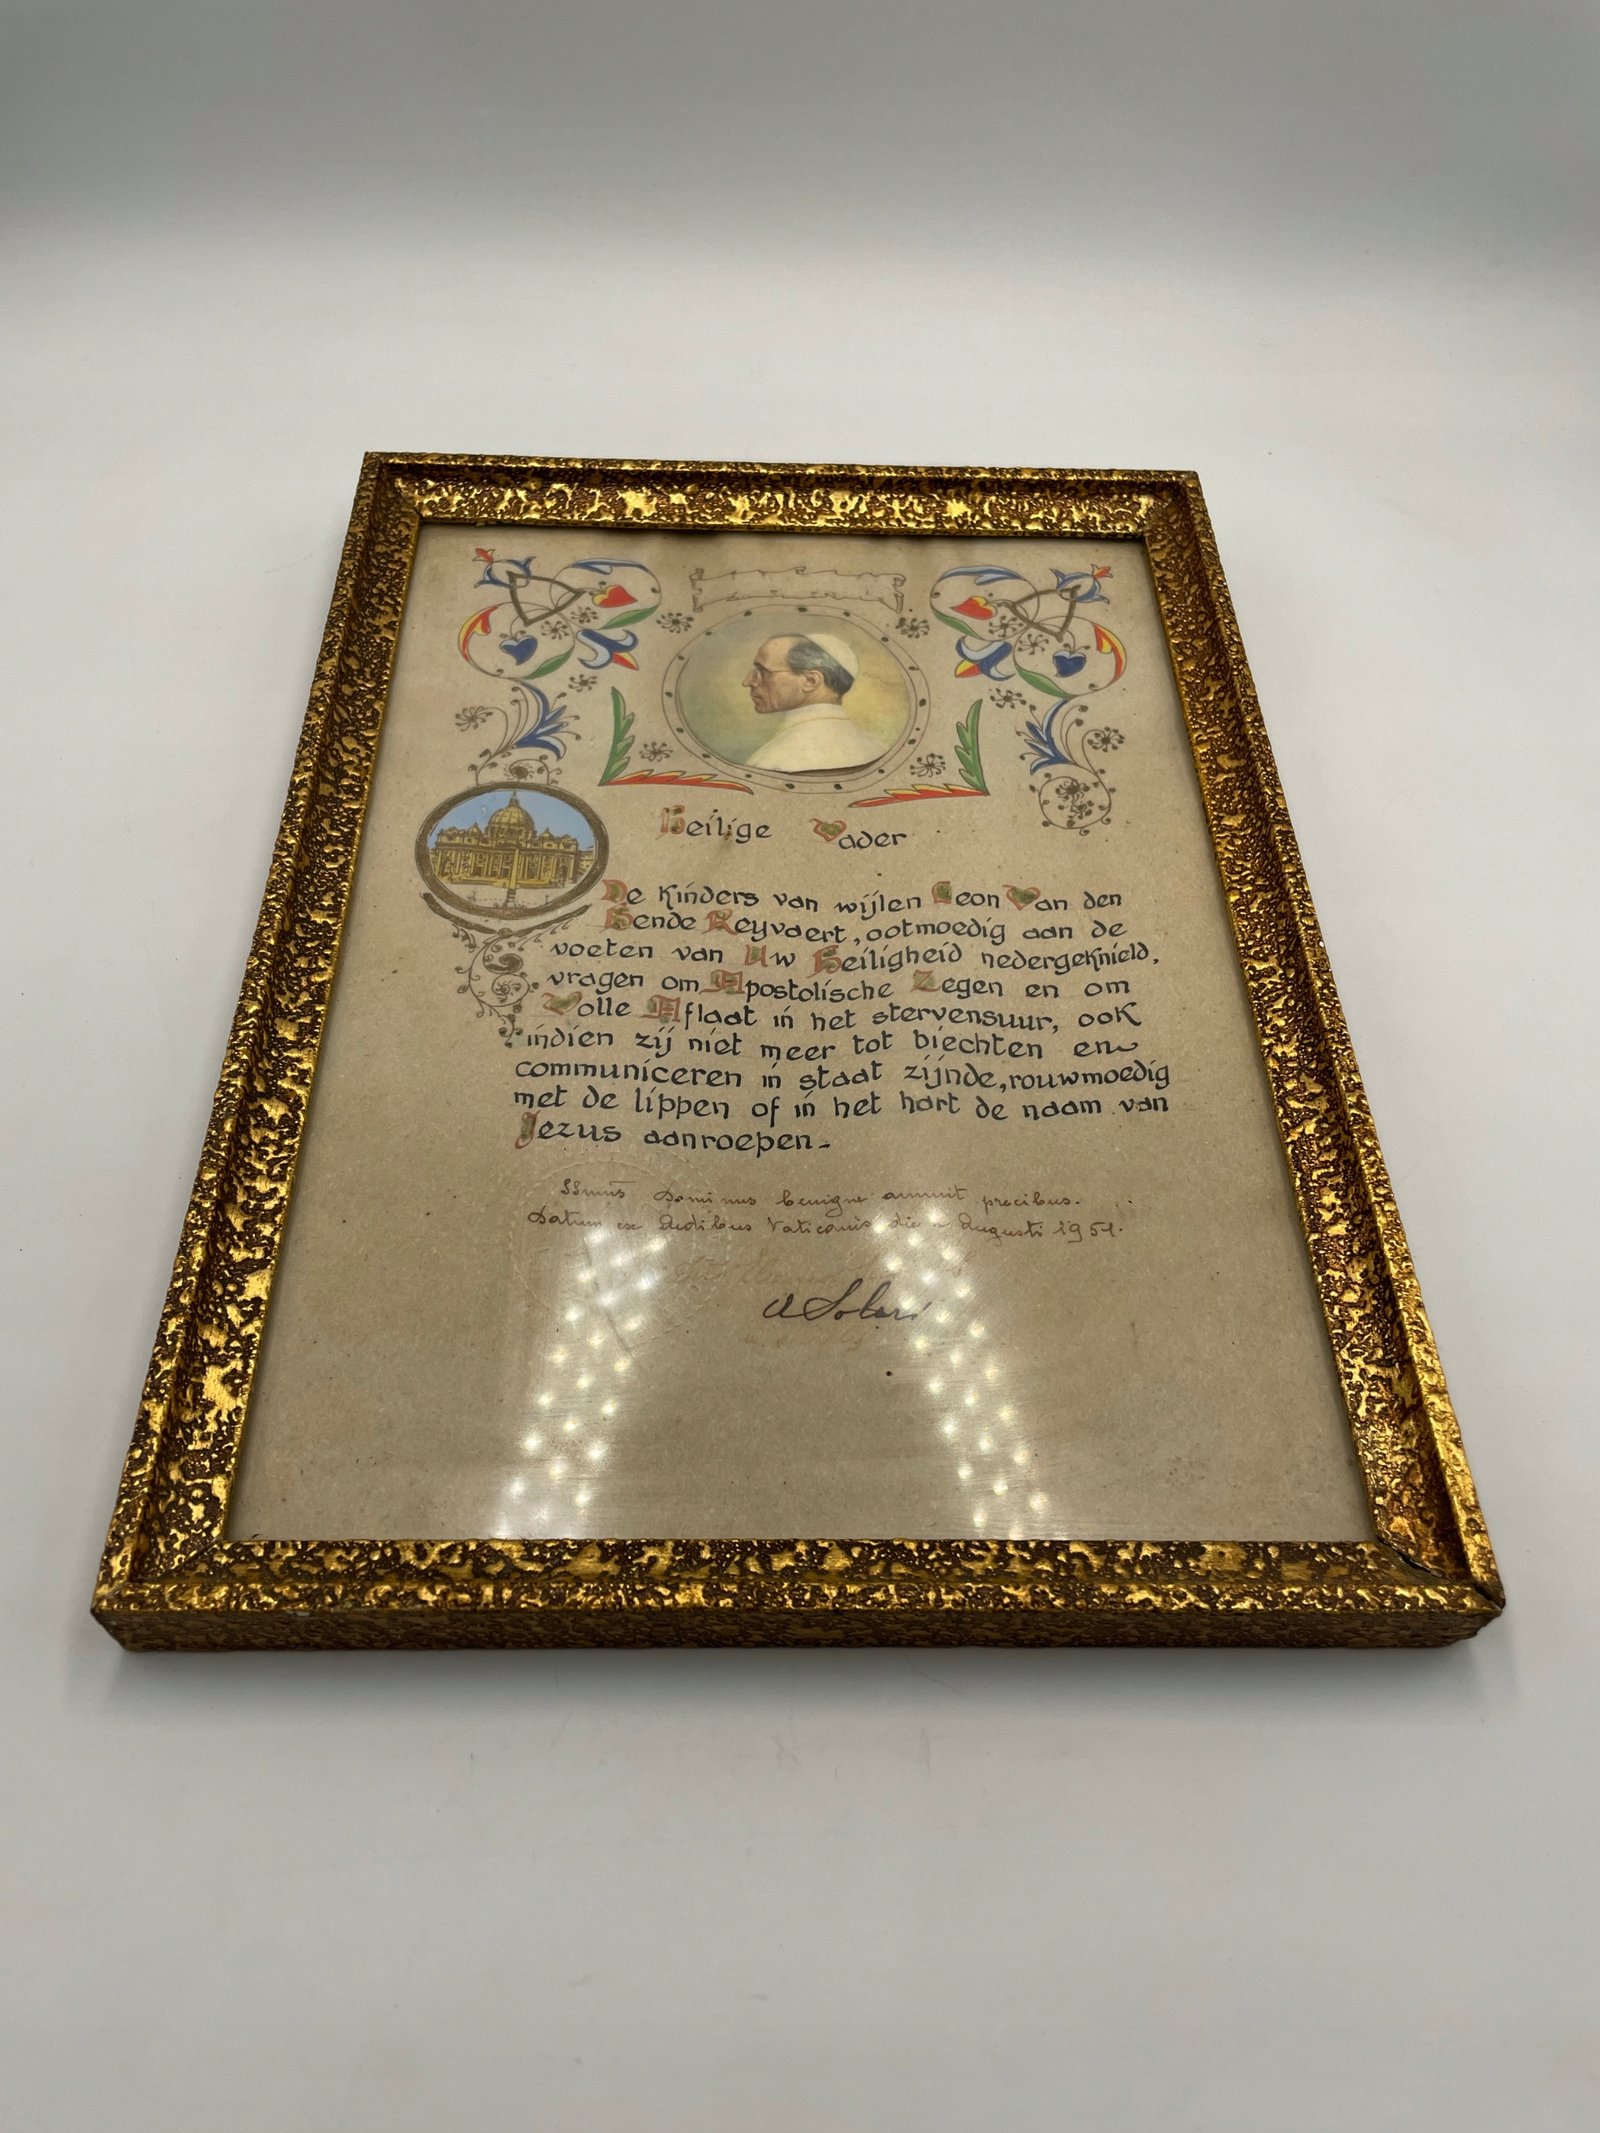 Heilige Vader
De kinders van wijlen Leon Van den
Hende Reyvaert, ootmoedig aan de
voeten van Uw Heiligheid nedergeknield,
vragen om Apostolische Zegen en om
Volle Aflaat in het stervensuur, ook
indien zij niet meer tot biechten en
communiceren in staat zijnde, rouwmoedig
met de lippen of in het hart de naam van
Jezus aanroepen.
SSmus Dominus benigne annuit precibus.
Datum ex Aedibus Vaticanis die Augusti 1951.